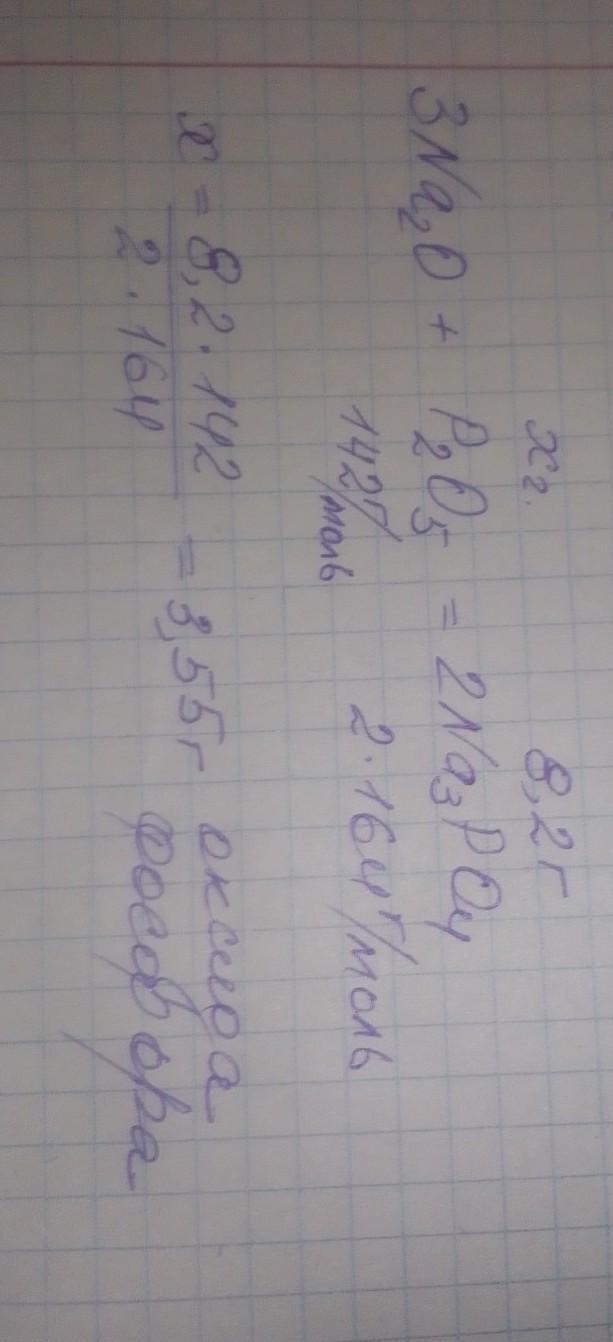 x г. 8,2 г
3Na₂O + P₂O₅ = 2Na₃PO₄
142 г/моль 2 · 164 г/моль
x = 8,2 · 142 / 2 · 164 = 3,55 г оксида
фосфора